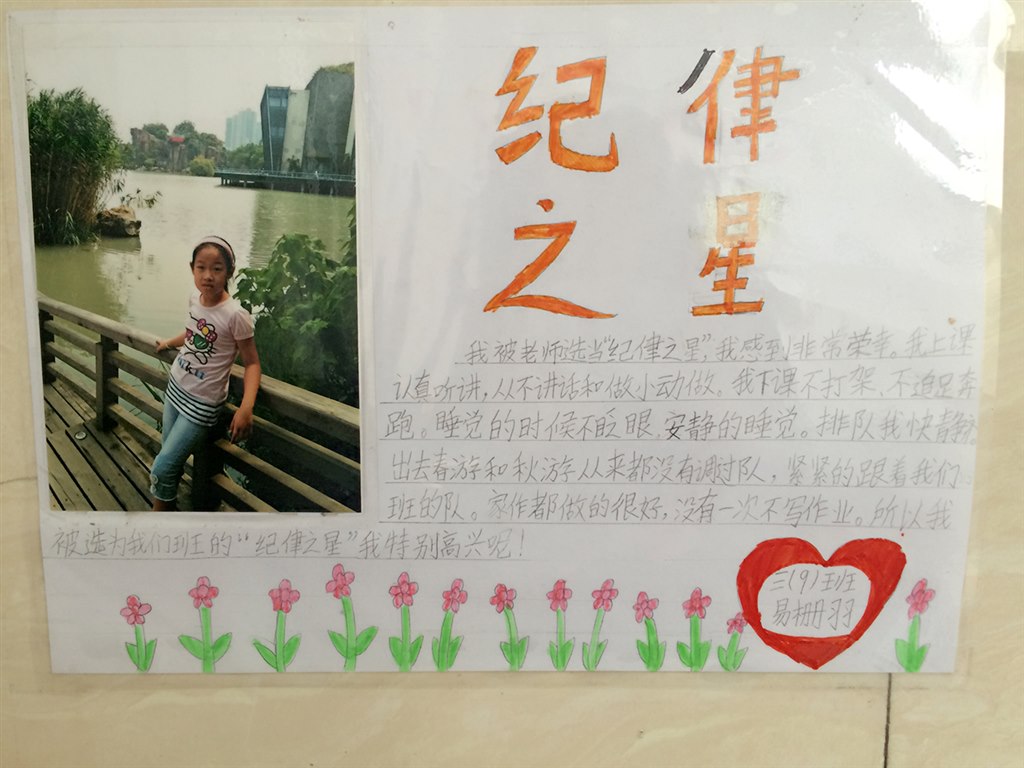 纪律
之星
我被老师选当“纪律之星”，我感到非常荣幸。我上课
认真听讲，从不讲话和做小动做。我下课不打架、不追足奔
跑。睡觉的时候不眨眼，安静的睡觉。排队我快静
出去春游和秋游从来都没有调过队，紧紧的跟着我们
班的队。家作都做的很好，没有一次不写作业。所以我
被选为我们班的“纪律之星”我特别高兴呢！
三（9）班
易栅羽